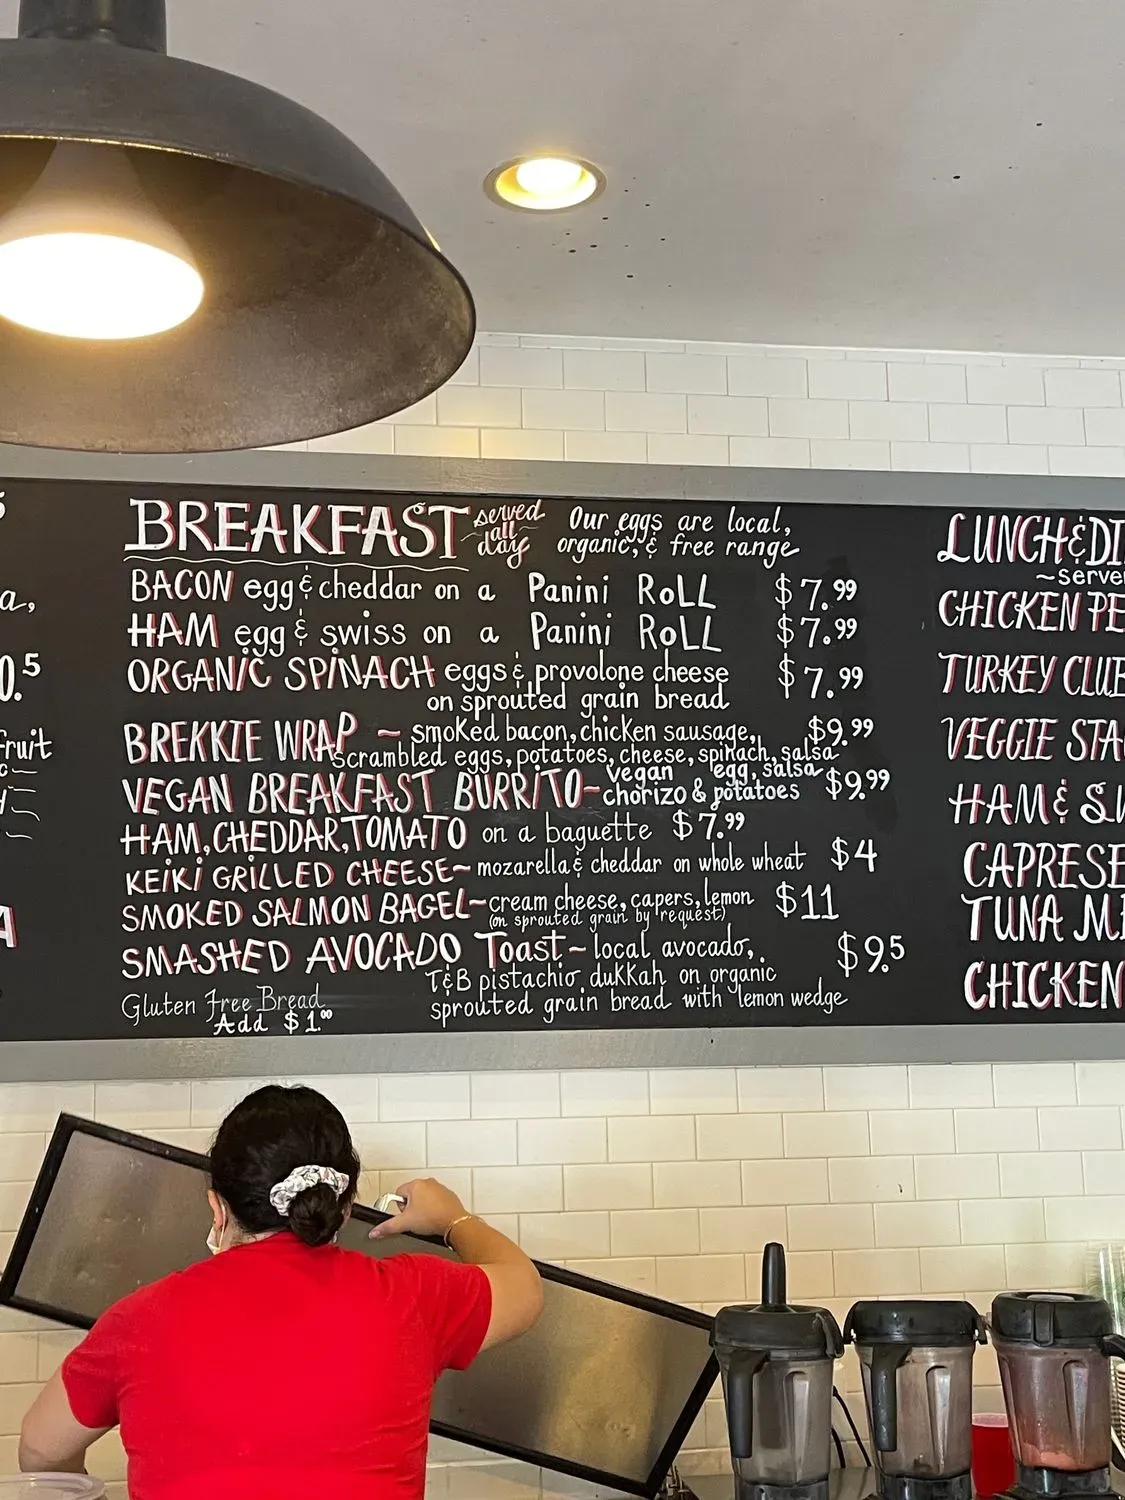 BREAKFAST served all day
Our eggs are local,
organic, & free range
BACON egg & cheddar on a Panini RoLL $7.99
HAM egg & swiss on a Panini RoLL $7.99
ORGANIC SPINACH eggs & provolone cheese $7.99
on sprouted grain bread
BREKKIE WRAP ~ smoked bacon, chicken sausage, $9.99
scrambled eggs, potatoes, cheese, spinach, salsa
VEGAN BREAKFAST BURRITO~ vegan egg, salsa $9.99
chorizo & potatoes
HAM, CHEDDAR, TOMATO on a baguette $7.99
KEIKI GRILLED CHEESE~ mozarella & cheddar on whole wheat $4
SMOKED SALMON BAGEL~ cream cheese, capers, lemon $11
(on sprouted grain by request)
SMASHED AVOCADO Toast~ local avocado, $9.5
T&B pistachio dukkah on organic
sprouted grain bread with lemon wedge
Gluten Free Bread
Add $1.00
a,
0.5
fruit
A
LUNCH & DI
~serve
CHICKEN PE
TURKEY CLUB
VEGGIE STA
HAM & SW
CAPRESE
TUNA M
CHICKEN